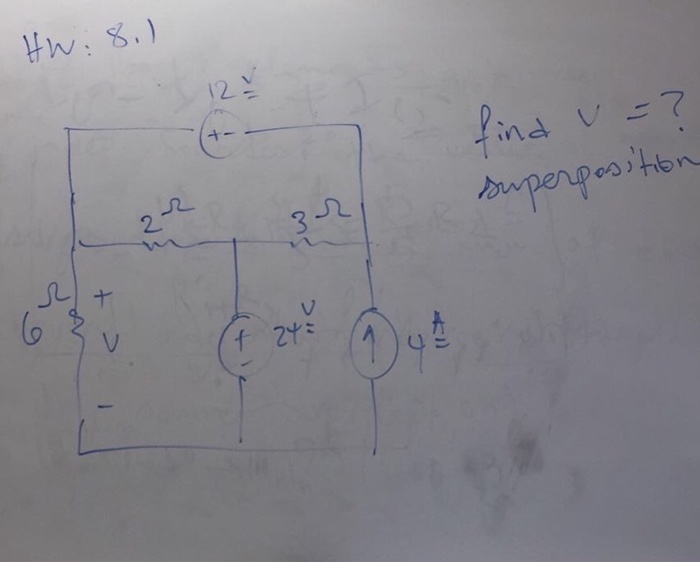 HW: 8.1
12 V
+ -
find v = ?
superposition
2 Ω
3 Ω
6 Ω
+
V
-
+
-
24 V
4 A